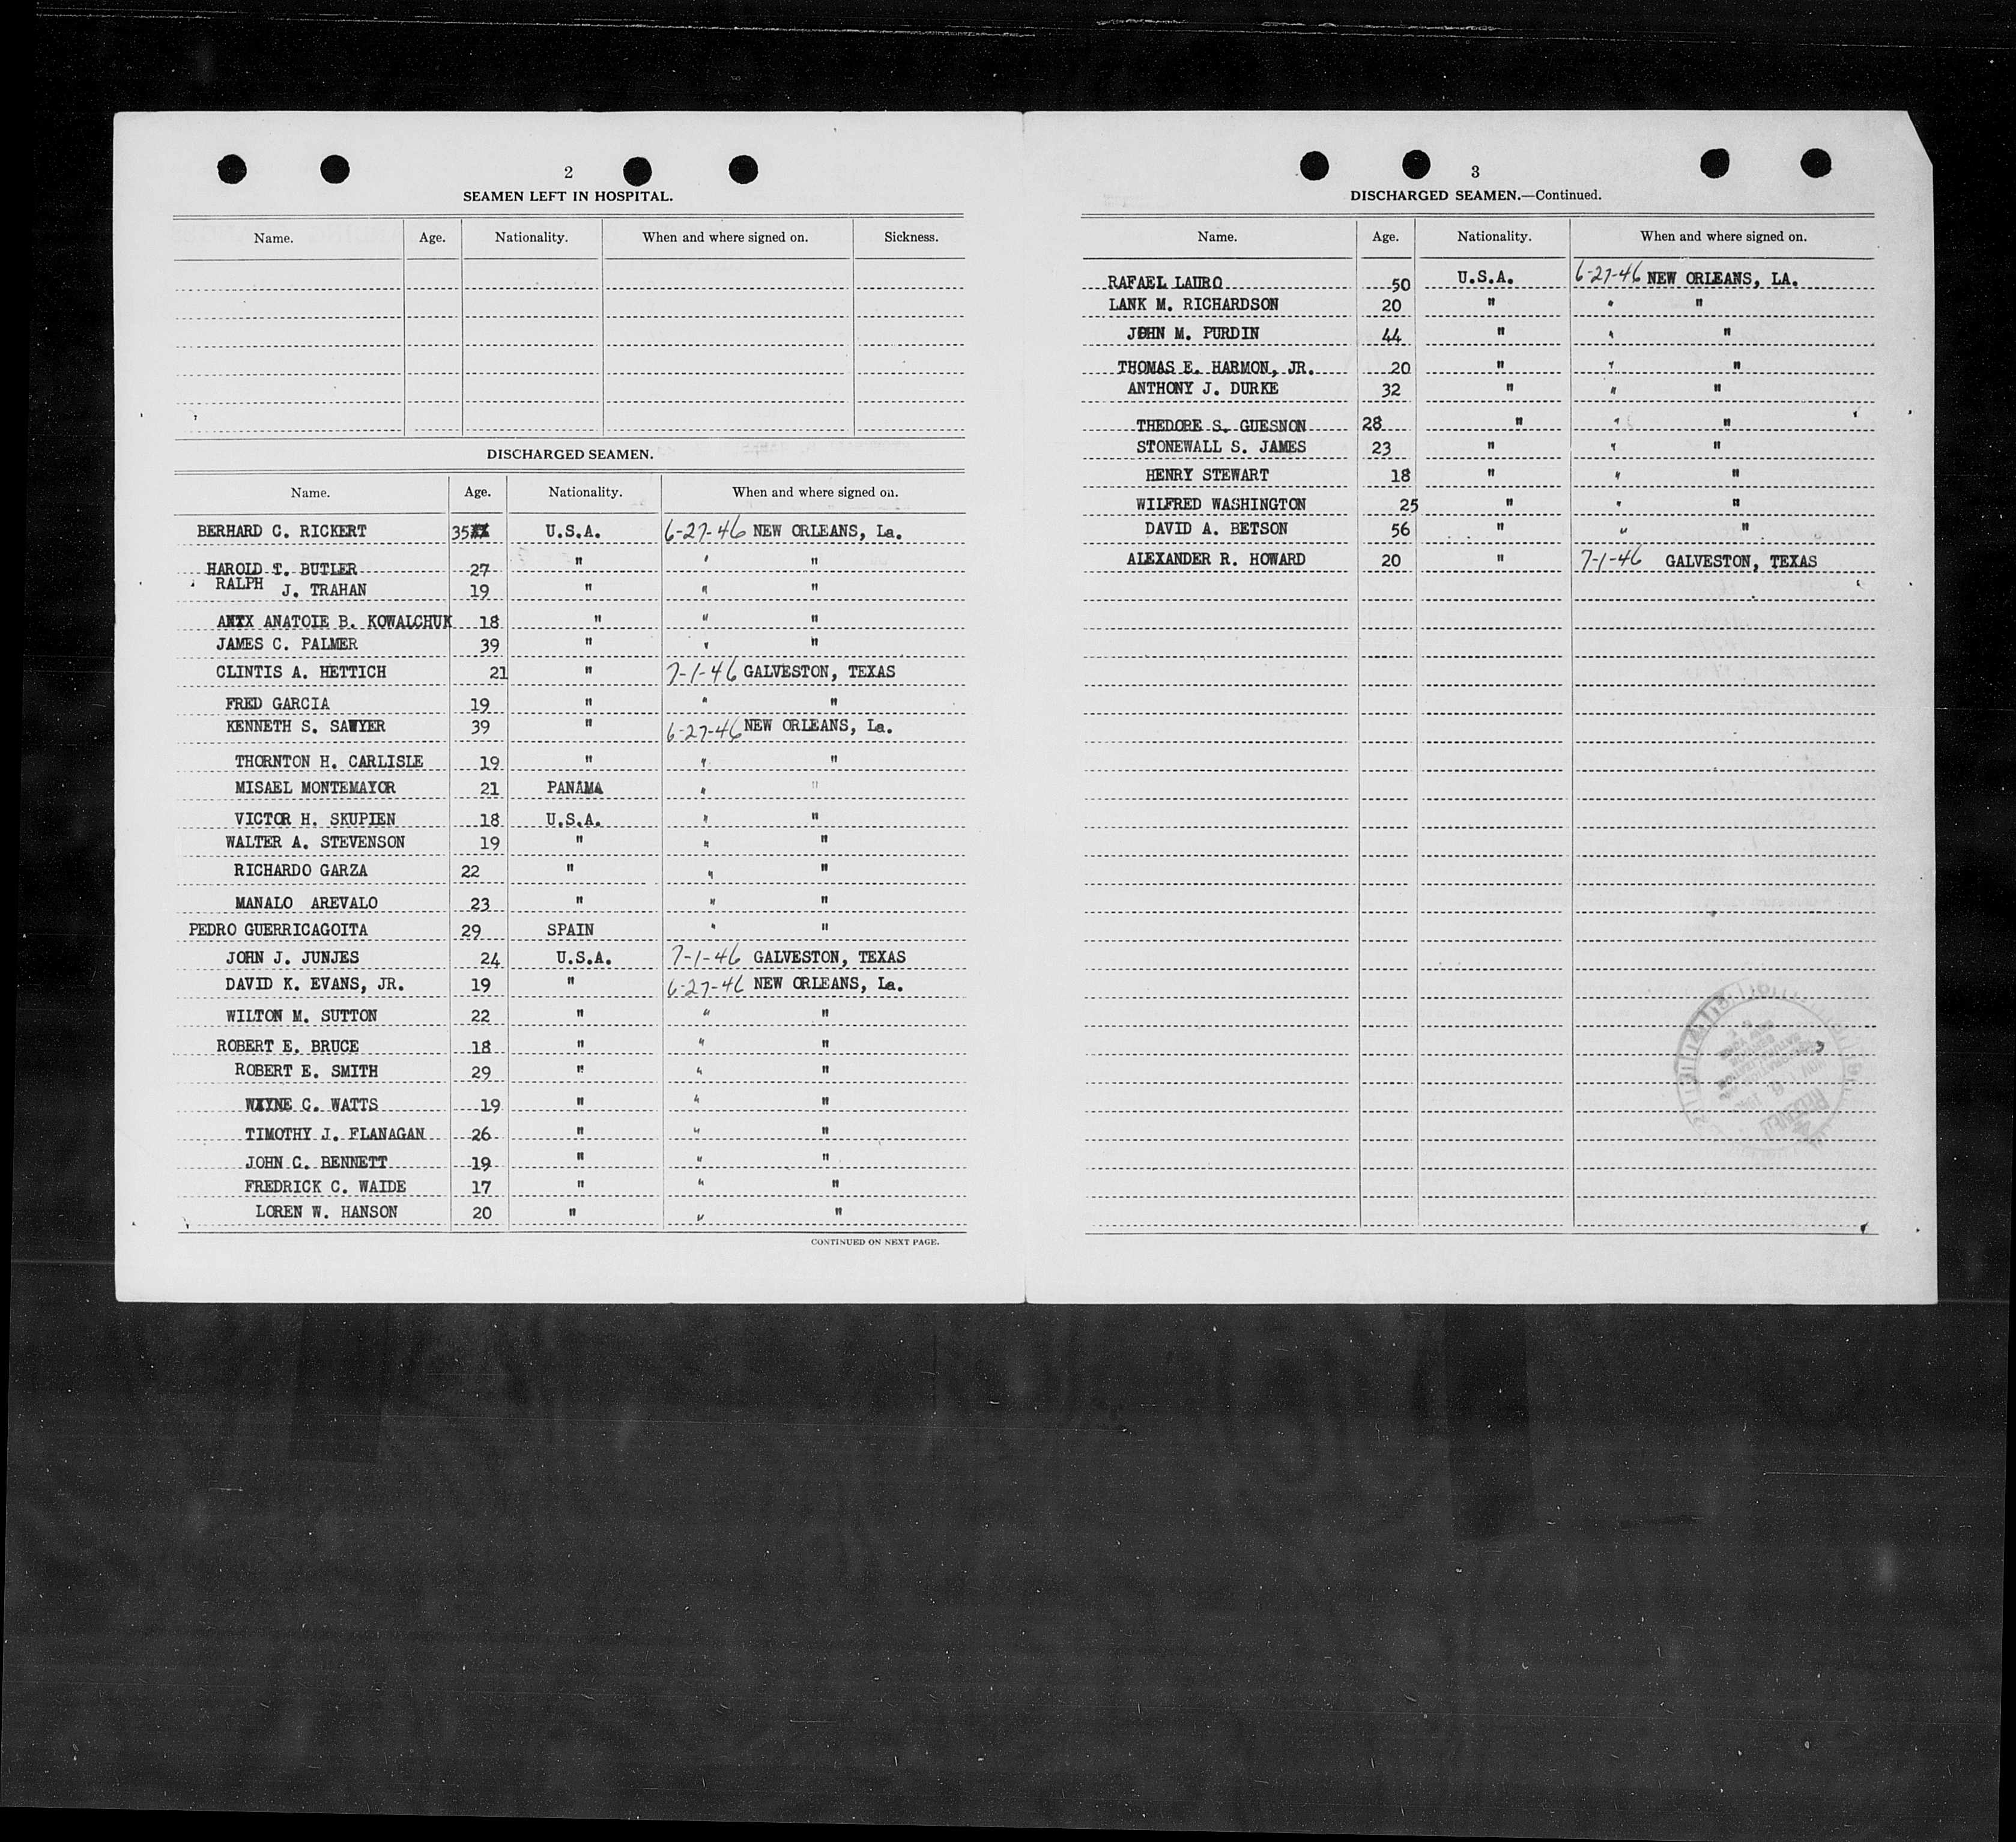 2
SEAMEN LEFT IN HOSPITAL.
Name. Age. Nationality. When and where signed on. Sickness.
DISCHARGED SEAMEN.
Name. Age. Nationality. When and where signed on.
BERHARD C. RICKERT 35 U.S.A. 6-27-46 NEW ORLEANS, La.
HAROLD T. BUTLER 27 " " "
RALPH J. TRAHAN 19 " " "
ANATOIE B. KOWALCHUK 18 " " "
JAMES C. PALMER 39 " " "
CLINTIS A. HETTICH 21 " 7-1-46 GALVESTON, TEXAS
FRED GARCIA 19 " " "
KENNETH S. SAWYER 39 " 6-27-46 NEW ORLEANS, La.
THORNTON H. CARLISLE 19 " " "
MISAEL MONTEMAYOR 21 PANAMA " "
VICTOR H. SKUPIEN 18 U.S.A. " "
WALTER A. STEVENSON 19 " " "
RICHARDO GARZA 22 " " "
MANALO AREVALO 23 " " "
PEDRO GUERRICAGOITA 29 SPAIN " "
JOHN J. JUNJES 24 U.S.A. 7-1-46 GALVESTON, TEXAS
DAVID K. EVANS, JR. 19 " 6-27-46 NEW ORLEANS, La.
WILTON M. SUTTON 22 " " "
ROBERT E. BRUCE 18 " " "
ROBERT E. SMITH 29 " " "
WAYNE C. WATTS 19 " " "
TIMOTHY J. FLANAGAN 26 " " "
JOHN C. BENNETT 19 " " "
FREDRICK C. WAIDE 17 " " "
LOREN W. HANSON 20 " " "
CONTINUED ON NEXT PAGE.
3
DISCHARGED SEAMEN.—Continued.
Name. Age. Nationality. When and where signed on.
RAFAEL LAURO 50 U.S.A. 6-27-46 NEW ORLEANS, LA.
LANK M. RICHARDSON 20 " " "
JOHN M. PURDIN 44 " " "
THOMAS E. HARMON, JR. 20 " " "
ANTHONY J. DURKE 32 " " "
THEDORE S. GUESNON 28 " " "
STONEWALL S. JAMES 23 " " "
HENRY STEWART 18 " " "
WILFRED WASHINGTON 25 " " "
DAVID A. BETSON 56 " " "
ALEXANDER R. HOWARD 20 " 7-1-46 GALVESTON, TEXAS